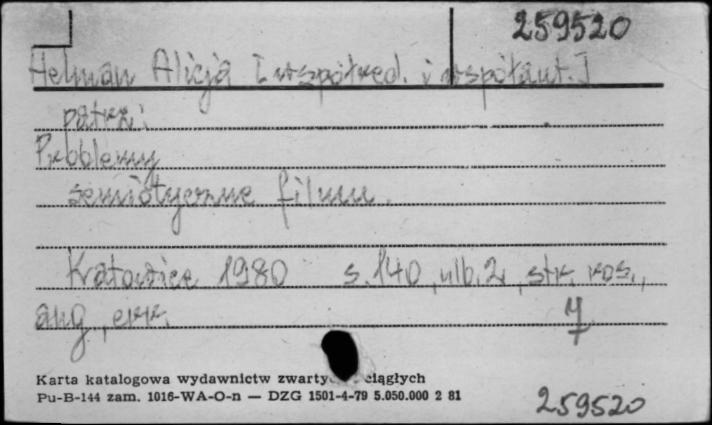 259520
Helman Alicja [współred. i współaut.]
patrz:
Problemy
semiotyczne filmu.
Katowice 1980 s. 140, nlb. 2, str. ros.,
ang., err.
Karta katalogowa wydawnictw zwarty ciągłych
Pu-B-144 zam. 1016-WA-O-n — DZG 1501-4-79 5.050.000 2 81
259520